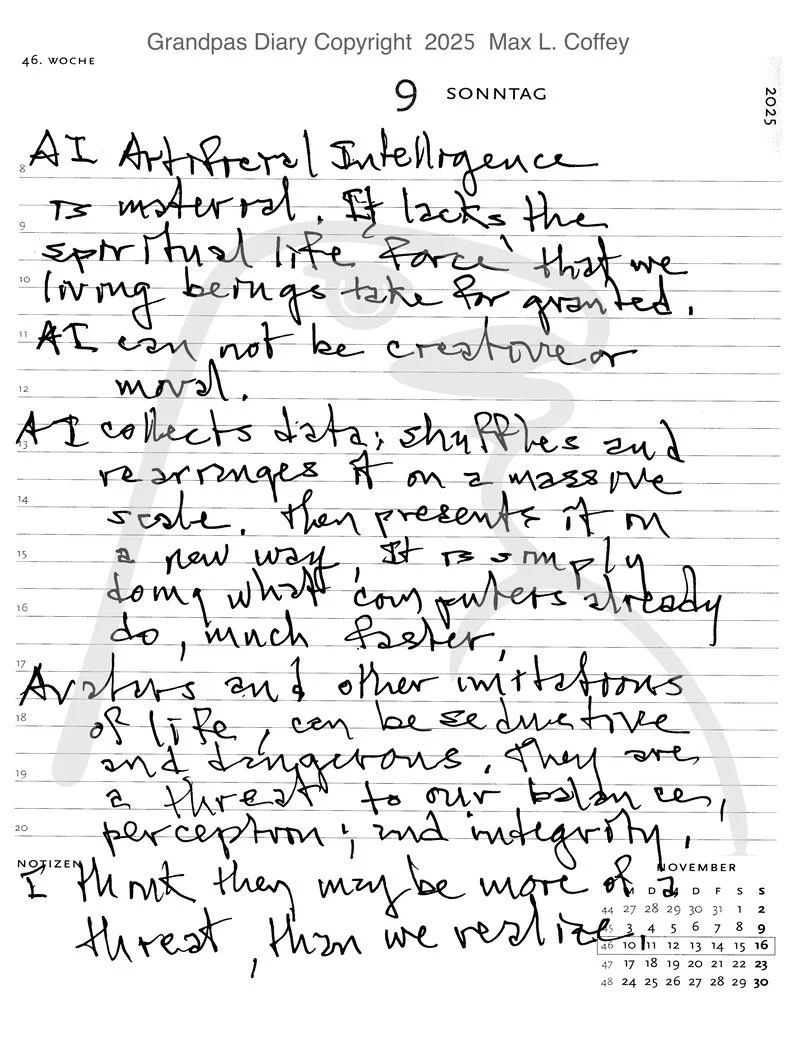 Grandpas Diary Copyright 2025 Max L. Coffey
46. WOCHE
9 SONNTAG
2025
AI Artificial Intelligence
8
is material. It lacks the
9
spiritual life force' that we
10
living beings take for granted.
11
AI can not be creative or
12
moral.
AI collects data; shuffles and
13
rearranges it on a massive
14
scale. Then presents it in
15
a new way. It is simply
doing what computers already
16
do, much faster.
17
Avatars and other imitations
18
of life, can be seductive
and dangerous. They are
19
a threat to our balance,
20
perception; and integrity.
NOTIZEN
NOVEMBER
I think they may be more of a
M D M D F S S
44 27 28 29 30 31 1 2
threat, than we realize.
45 3 4 5 6 7 8 9
46 10 11 12 13 14 15 16
47 17 18 19 20 21 22 23
48 24 25 26 27 28 29 30